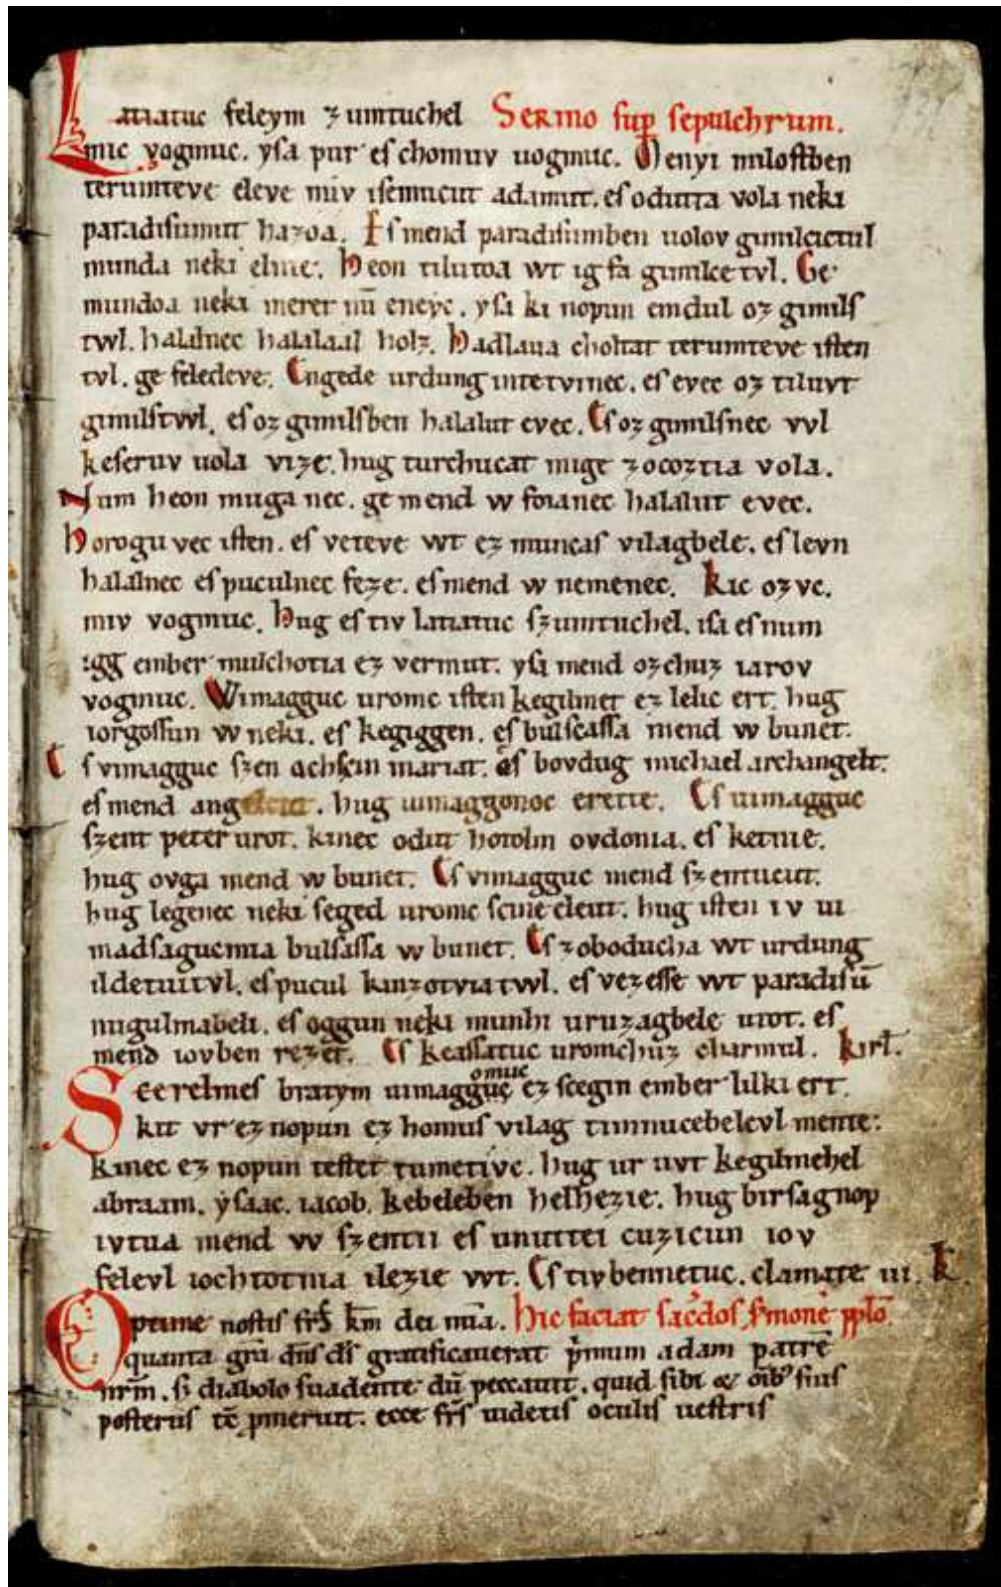 Latiatuc feleym zumtuchel Sermo sup sepulchrum.
mic vogmuc. ysa pur es chomuv uogmuc. Menyi milostben
terumteve eleve miv isemucut adamut. es odutta vola neki
paradisumut hazoa. Es mend paradisumben uolov gimilcictul
munda neki elnie. Heon tilutoa wt ig fa gimilce tvl. Ge
mundoa neki meret nū eneyc. ysa ki nopun emdul oz gimils
twl. halalnec halalaal holz. Hadlaua choltat terumteve isten
tvl. ge feledeve. Engede urdung intetvinec. es evec oz tiluvt
gimilstwl. es oz gimilsben halalut evec. Es oz gimilsnec vvl
keseruv uola vize. hug turchucat mige zocoztia vola.
Num heon muga nec. ge mend w foianec halalut evec.
Horogu vec isten. es veteve wt ez muncas vilagbele. es levn
halalnec es puculnec feze. es mend w nemenec. Kic ozvc.
miv vogmuc. Hug es tiv latiatuc szumtuchel. isa es num
igg ember mulchotia ez vermut. ysa mend ozchuz iarov
vogmuc. Wimagguc uromc isten kegilmet ez lelic ert. hug
iorgossun w neki. es kegiggen. es bulscassa mend w bunet.
Es vimagguc szen achscin mariat. es bovdug michael archangelt.
es mend angelcut. hug uimaggonoc erette. Es uimagguc
szent peter urot. kinec odut hotolm ovdonia. es ketnie.
hug ovga mend w bunet. Es vimagguc mend szentucut.
hug legenec neki seged uromc scine eleut. hug isten iv ui
madsaguc mia bulsassa w bunet. Es zoboducha wt urdung
ildetuitvl. es pucul kinzotviatwl. es vezesse wt paradisū
nugulmabeli. es oggun neki munhi uruzagbele utot. es
mend iovben rezet. Es keassatuc uromchuz charmul. Kirł.
Scerelmes bratym uimagg<sup>omuc</sup>guc ez scegin ember lilki ert.
kit vr ez nopun ez homus vilag timnucebelevl mente:
kinec ez nopun testet tumetivc. hug ur uvt kegilmehel
abraam. ysaac. iacob. kebeleben helhezie. hug birsagnop
ivtua mend vv szentii es unuttei cuzicun iov
felevl iochtotnia ilezie vvt. Es tiv bennetuc. clamate iii. K.
Optime nostis frs̄ km̄ dei mīa. Hic faciat sac̄dos s̄mone pplō
quanta grā dn̄s ds̄ gratificauerat p̄mum adam patrē
nrm̄. s; diabolo suadente dū peccauit. quid sibi & oīb; suis
posteris tc̄ pmeruit. ecce frs̄ uidetis oculis uestris